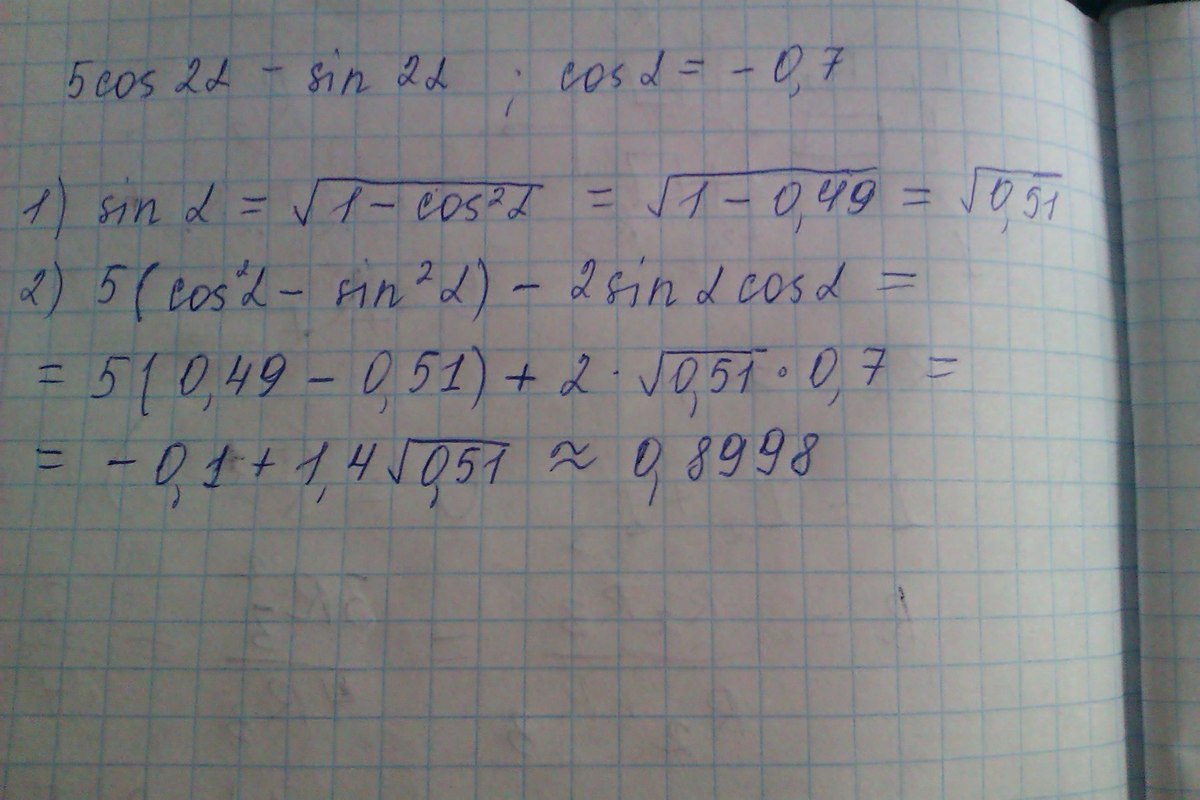 5cos 2α - sin 2α ; cos α = - 0,7
1) sin α = √1 - cos²α = √1 - 0,49 = √0,51
2) 5(cos²α - sin²α) - 2sin α cos α =
= 5(0,49 - 0,51) + 2 · √0,51 · 0,7 =
= - 0,1 + 1,4√0,51 ≈ 0,8998